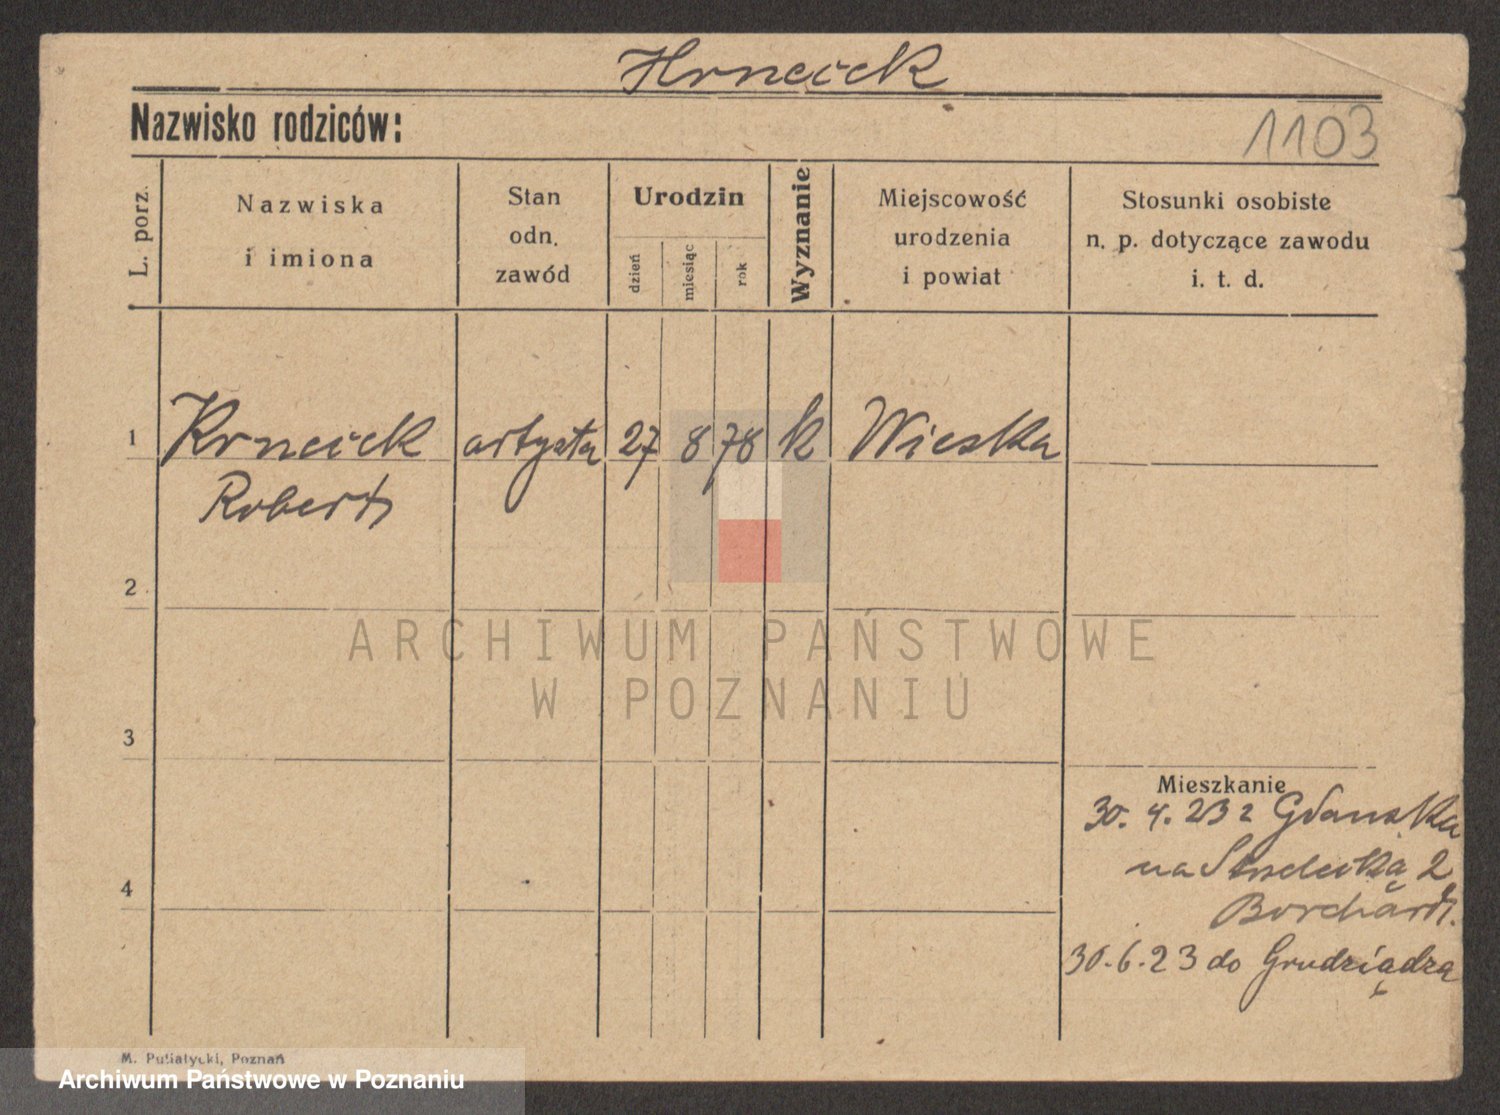 Hrncick
Nazwisko rodziców:
1103
L. porz.
Nazwiska
i imiona
Stan
odn.
zawód
Urodzin
dzień
miesiąc
rok
Wyznanie
Miejscowość
urodzenia
i powiat
Stosunki osobiste
n. p. dotyczące zawodu
i. t. d.
1 Krncick artysta 27 8 78 k Wieska
Robert
2
3
4
ARCHIWUM PAŃSTWOWE
W POZNANIU
Mieszkanie
30. 4. 23 z Gdańska
na Strzelecką 2
Borchardt.
30. 6. 23 do Grudziądza
M. Putiatycki, Poznań
Archiwum Państwowe w Poznaniu